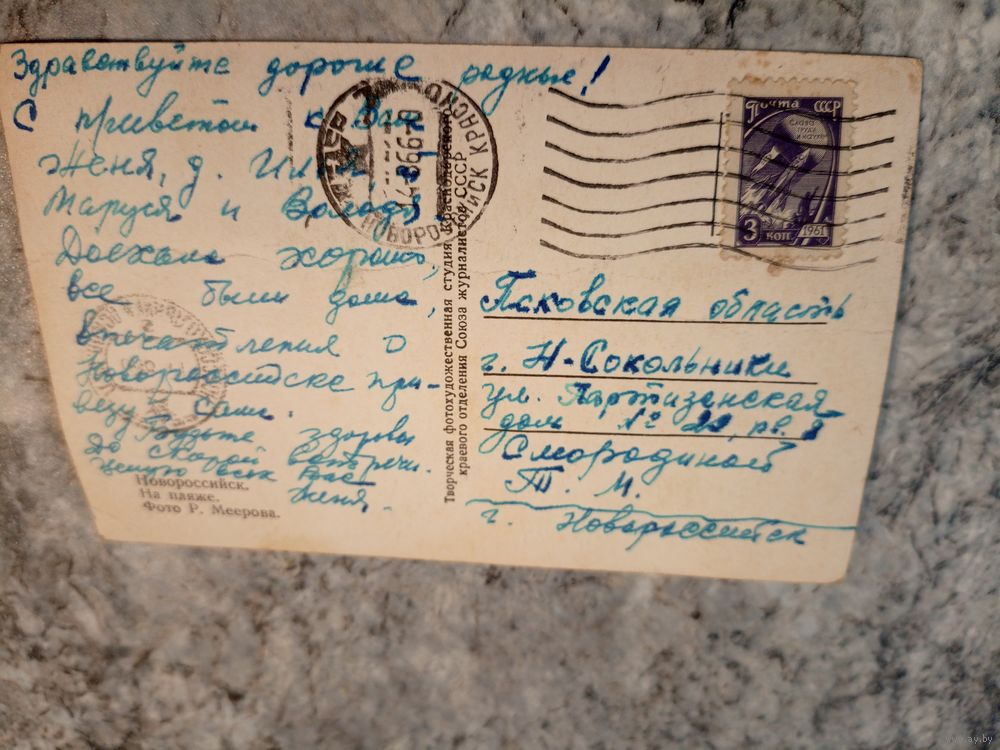 Здравствуйте дорогие родные!
С приветом к Вам
Женя, д. Илья,
Маруся и Володя.
Доехала хорошо,
все были дома,
впечатления о
Новороссийске при-
везу сама.
Будьте здоровы
До скорой встречи.
Целую всех Вас
Женя.
Новороссийск.
На пляже.
Фото Р. Меерова.
Творческая фотохудожественная студия Краснодарского
краевого отделения Союза журналистов СССР
НОВОРОССИЙСК КРАСНОД
Почта СССР
СЛАВА
ТРУДУ
И НАУКЕ
3 КОП 1961
Псковская область
г. Н-Сокольники
ул. Партизанская
дом № 22, кв.
Смородиной
Т. М.
г. Новороссийск
www.ay.by